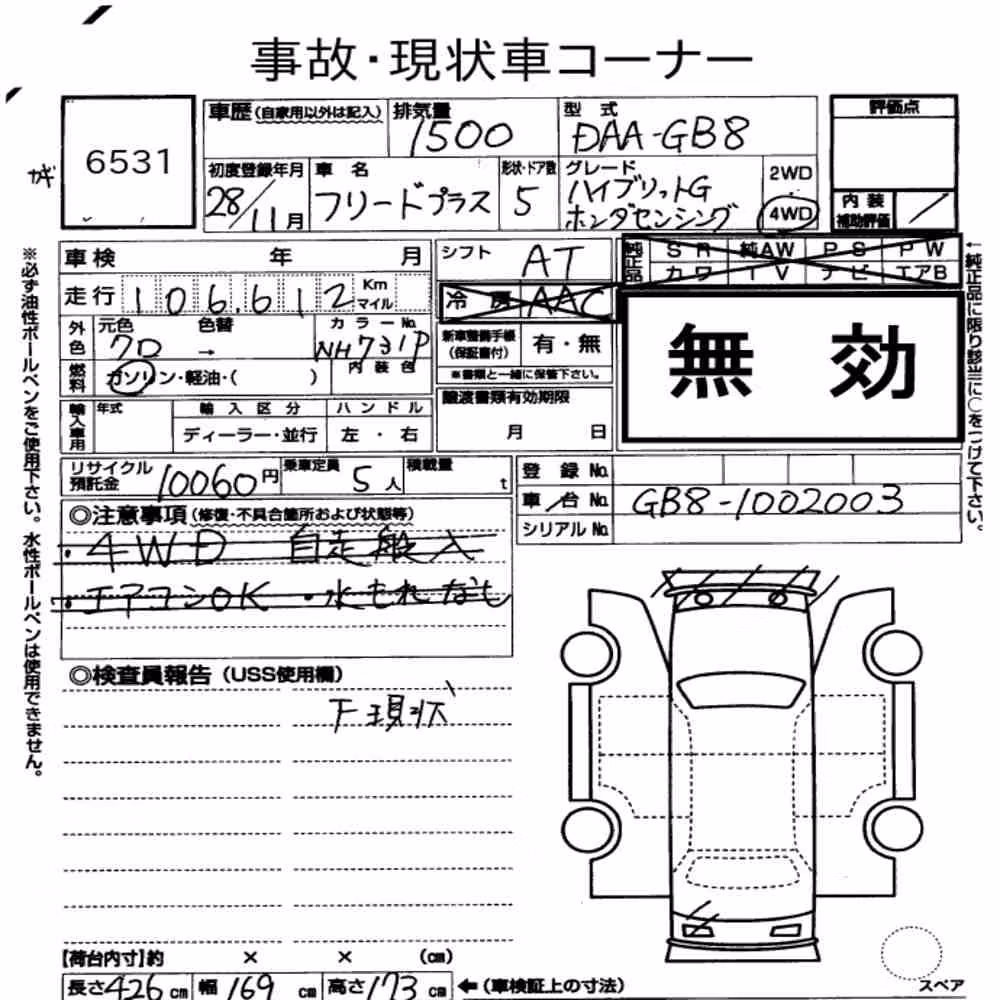 事故・現状車コーナー
6531
車歴(自家用以外は記入)
排気量
1500
型式
DAA-GB8
評価点
初度登録年月
28/11月
車名
フリードプラス
形状・ドア数
5
グレード
ハイブリットG
ホンダセンシング
2WD
4WD
内装
補助評価
車検 年 月
シフト
AT
純正品
SR 純AW PS PW
カワ TV ナビ エアB
走行 106,612 Km マイル
冷房 AAC
無効
外色
元色 色替
クロ →
カラーNo.
NH731P
内装色
新車整備手帳
(保証書付)
有・無
※書類と一緒に保管下さい。
燃料
ガソリン・軽油・( )
譲渡書類有効期限
月 日
輸入車用
年式
輸入区分
ハンドル
ディーラー・並行
左・右
リサイクル
預託金
10060円
乗車定員
5人
積載量
t
登録No.
車台No.
GB8-1002003
シリアルNo.
◎注意事項(修復・不具合箇所および状態等)
・4WD 自走搬入
・エアコンOK ・水もれなし
◎検査員報告(USS使用欄)
下現状
【荷台内寸】約 × × (cm)
長さ426cm 幅169cm 高さ173cm ←(車検証上の寸法)
スペア
※必ず油性ボールペンをご使用下さい。水性ボールペンは使用できません。
←純正品に限り該当に○をつけて下さい。